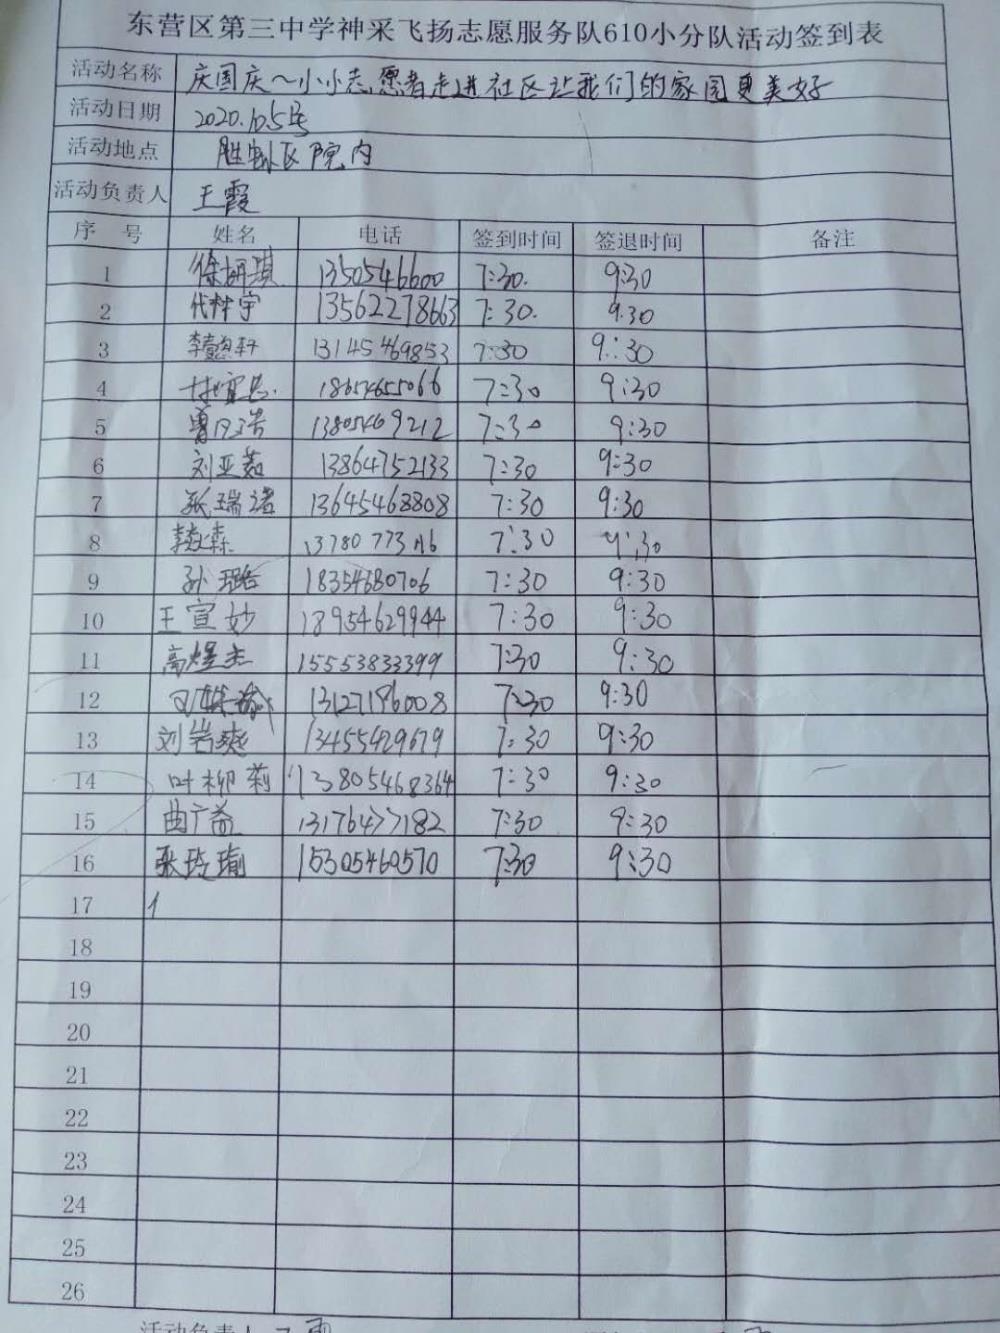 东营区第三中学神采飞扬志愿服务队610小分队活动签到表
活动名称 庆国庆～小小志愿者走进社区让我们的家园更美好
活动日期 2020.10.5号
活动地点 区院内
活动负责人 王霞
序号 姓名 电话 签到时间 签退时间 备注
1 徐妍琪 13505466600 7:30. 9:30
2 代梓宇 13562278663 7:30. 9.30
3 13145469853 7:30 9:30
4 18654655066 7:30 9:30
5 曹 浩 13805469212 7:30 9:30
6 刘亚茹 13864752133 7:30 9:30
7 张瑞诸 13645468808 7:30 9:30
8 7:30 9:30
9 孙 18354680706 7:30 9:30
10 王宣妙 18954629944 7:30 9:30
11 高煜杰 15553833399 7:30 9:30
12 13127186008 7:30 9:30
13 刘岩爽 13455429679 7:30 9:30
14 叶柳莉 13805468364 7:30 9:30
15 曲广益 13176477182 7:30 9:30
16 张 瑜 15305460570 7:30 9:30
17
18
19
20
21
22
23
24
25
26
活动负责人